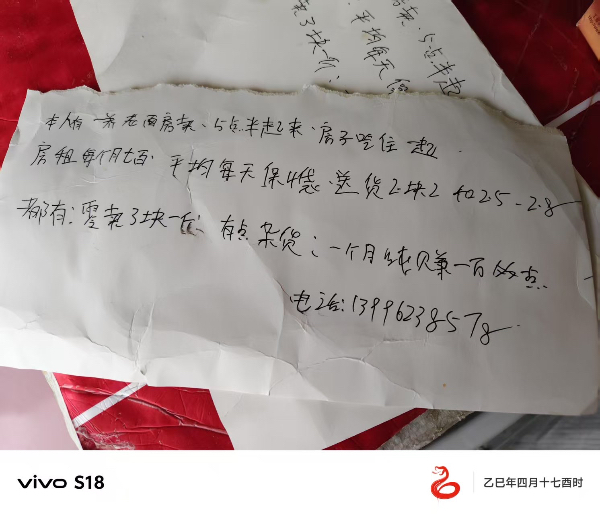 菜、5点半起
平均每天保
卖了块一斤:
本人有一弟老面房菜、5点半起来、房子吃住一起
房租每个月七百、平均每天保4袋、送货2块2和2.5-2.8
都有:零卖3块一斤、有点杂货;一个月纯赚一百多点
电话:13996238578
vivo S18
乙巳年四月十七酉时